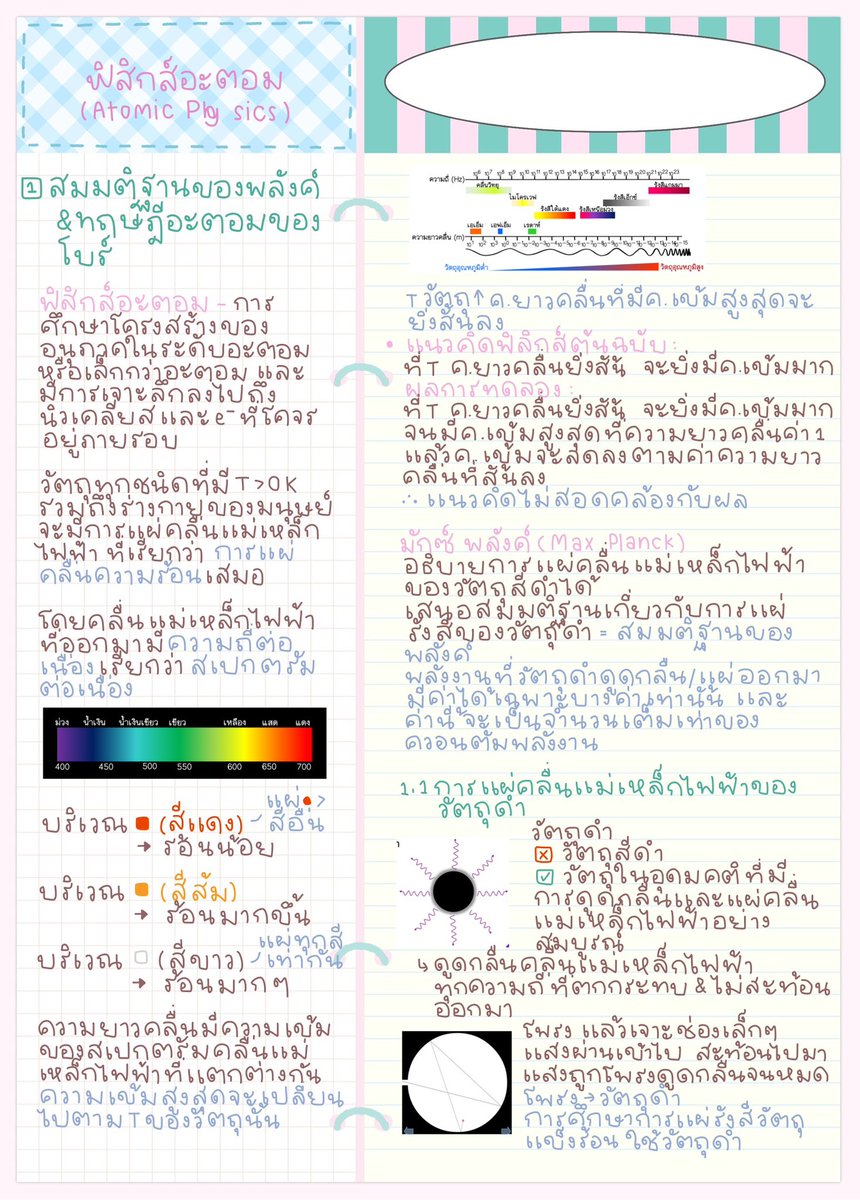 ฟิสิกส์อะตอม
(Atomic Phy sics)
1 สมมติฐานของพลังค์
&ทฤษฎีอะตอมของ
โบร์
ฟิสิกส์อะตอม - การ
ศึกษาโครงสร้างของ
อนุภาคในระดับอะตอม
หรือเล็กกว่าอะตอม และ
มีการเจาะลึกลงไปถึง
นิวเคลียส และ e⁻ ที่โคจร
อยู่ภายรอบ
วัตถุทุกชนิดที่มี T>0K
รวมถึงร่างกายของมนุษย์
จะมีการแผ่คลื่นแม่เหล็ก
ไฟฟ้า ที่เรียกว่า การแผ่
คลื่นความร้อนเสมอ
โดยคลื่นแม่เหล็กไฟฟ้า
ที่ออกมามีความถี่ต่อ
เนื่อง เรียกว่า สเปกตรัม
ต่อเนื่อง
ม่วง น้ำเงิน น้ำเงินเขียว เขียว เหลือง แสด แดง
400 450 500 550 600 650 700
บริเวณ (สีแดง) แผ่ >
สีอื่น
→ ร้อนน้อย
บริเวณ (สีส้ม)
→ ร้อนมากขึ้น
บริเวณ (สีขาว) แผ่ทุกสี
เท่ากัน
→ ร้อนมาก ๆ
ความยาวคลื่นมีความเข้ม
ของสเปกตรัมคลื่นแม่
เหล็กไฟฟ้าที่แตกต่างกัน
ความเข้มสูงสุดจะเปลี่ยน
ไปตาม T ของวัตถุนั้น
ความถี่ (Hz) 10⁶ 10⁷ 10⁸ 10⁹ 10¹⁰ 10¹¹ 10¹² 10¹³ 10¹⁴ 10¹⁵ 10¹⁶ 10¹⁷ 10¹⁸ 10¹⁹ 10²⁰ 10²¹ 10²² 10²³
คลื่นวิทยุ รังสีแกมมา
ไมโครเวฟ รังสีเอ็กซ์
รังสีใต้แดง รังสีเหนือม่วง
เอเอ็ม เอฟเอ็ม เรดาห์
ความยาวคลื่น (m)
วัตถุอุณหภูมิต่ำ วัตถุอุณหภูมิสูง
T วัตถุ↑ ค.ยาวคลื่นที่มีค.เข้มสูงสุดจะ
ยิ่งสั้นลง
• แนวคิดฟิสิกส์ดั้งเดิมฉบับ :
ที่ T ค.ยาวคลื่นยิ่งสั้น จะยิ่งมีค.เข้มมาก
ผลการทดลอง :
ที่ T ค.ยาวคลื่นยิ่งสั้น จะยิ่งมีค.เข้มมาก
จนมีค.เข้มสูงสุดที่ความยาวคลื่นค่า 1
แล้วค.เข้มจะลดลงตามค่าความยาว
คลื่นที่สั้นลง
∴ แนวคิดไม่สอดคล้องกับผล
มักซ์ พลังค์ (Max Planck)
อธิบายการแผ่คลื่นแม่เหล็กไฟฟ้า
ของวัตถุสีดำได้
เสนอสมมติฐานเกี่ยวกับการแผ่
รังสีของวัตถุดำ = สมมติฐานของ
พลังค์
พลังงานที่วัตถุดำดูดกลืน/แผ่ออกมา
มีค่าได้เฉพาะบางค่าเท่านั้น และ
ค่านี้จะเป็นจำนวนเต็มเท่าของ
ควอนตัมพลังงาน
1.1 การแผ่คลื่นแม่เหล็กไฟฟ้าของ
วัตถุดำ
วัตถุดำ
☒ วัตถุสีดำ
☑ วัตถุในอุดมคติที่มี
การดูดกลืนและแผ่คลื่น
แม่เหล็กไฟฟ้าอย่าง
สมบูรณ์
↳ ดูดกลืนคลื่นแม่เหล็กไฟฟ้า
ทุกความถี่ที่ตกกระทบ & ไม่สะท้อน
ออกมา
โพรง แล้วเจาะช่องเล็กๆ
แสงผ่านเข้าไป สะท้อนไปมา
แสงถูกโพรงดูดกลืนจนหมด
โพรง → วัตถุดำ
การศึกษาการแผ่รังสีวัตถุ
แข็งร้อน ใช้วัตถุดำ